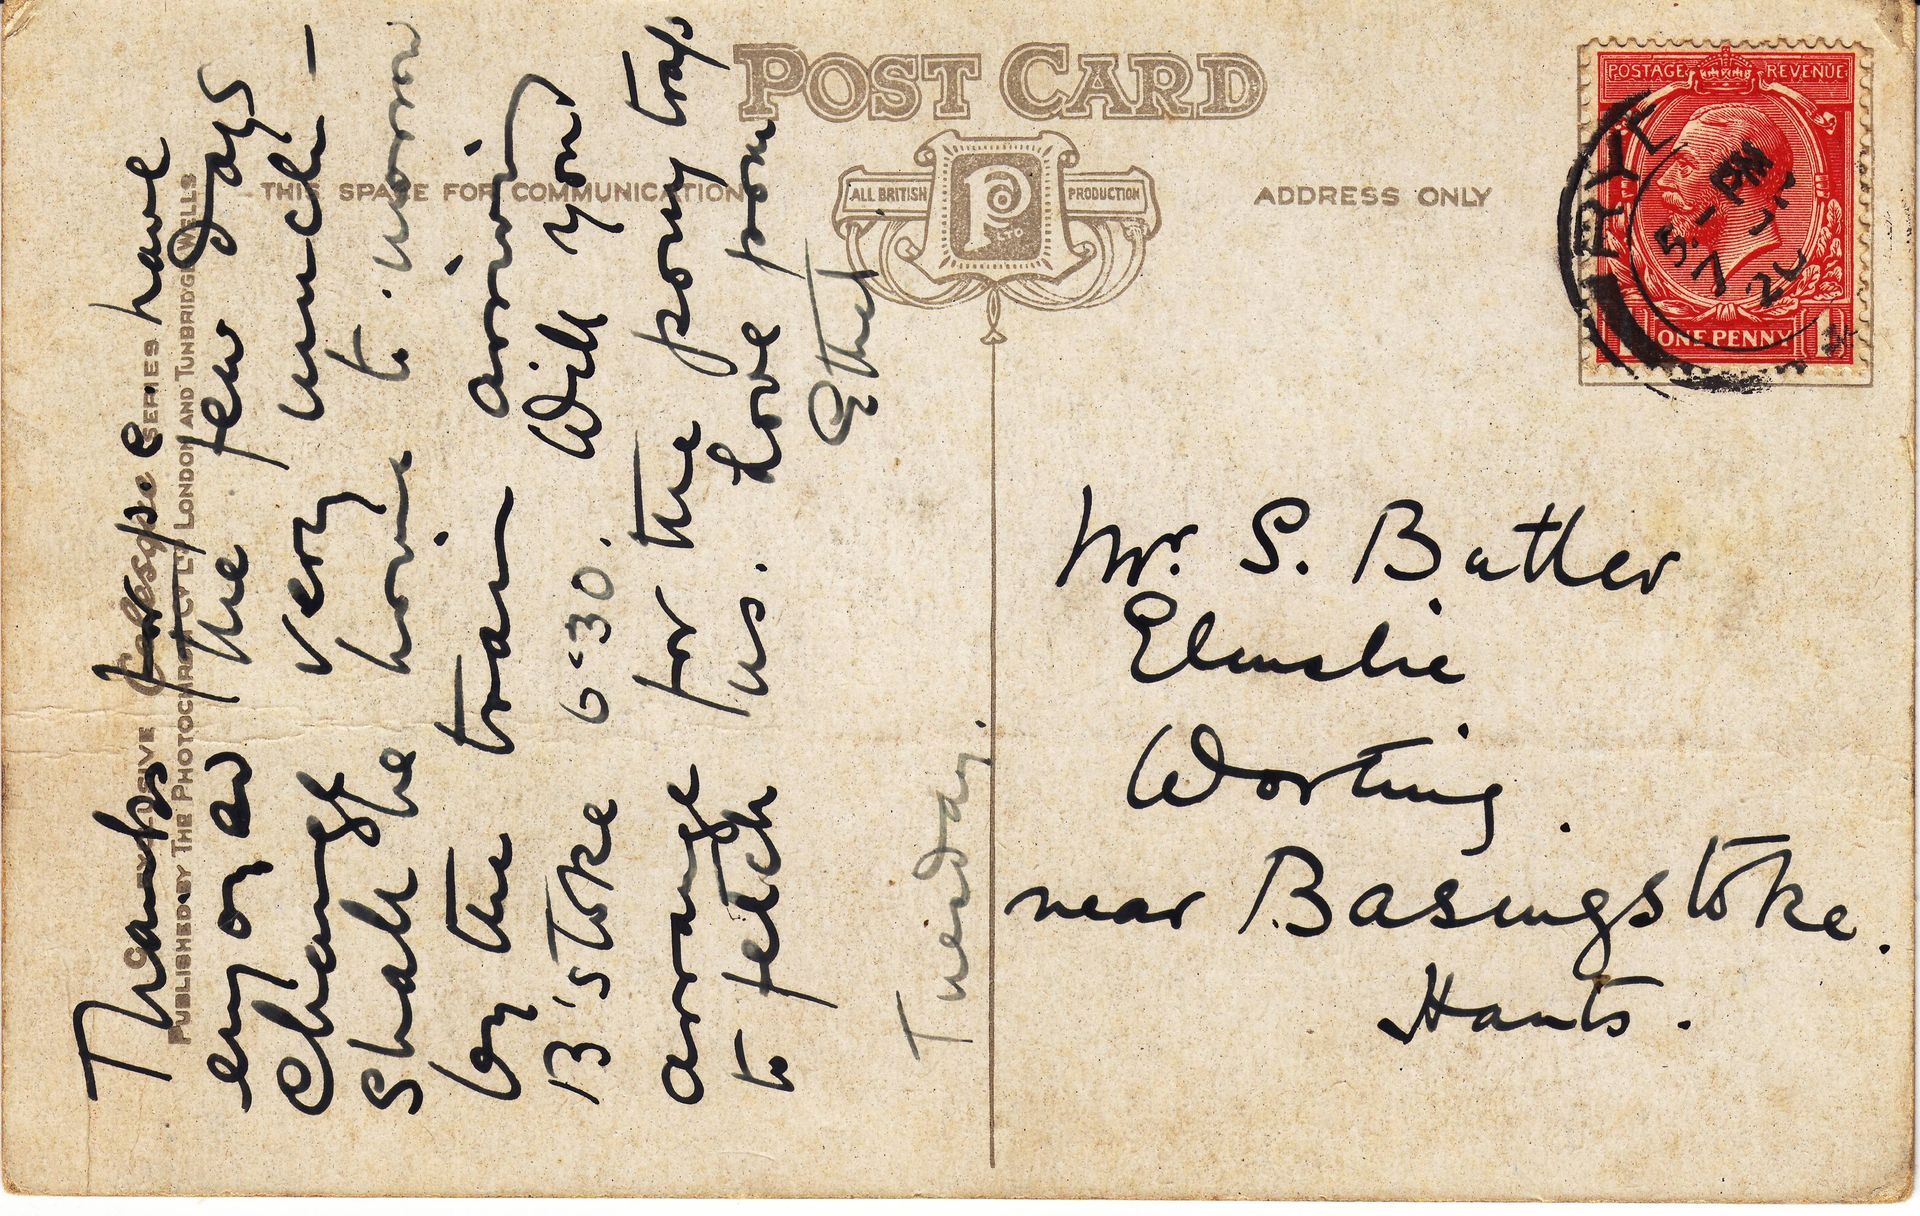 POST CARD
THIS SPACE FOR COMMUNICATION
ALL BRITISH
PRODUCTION
P
LTD
ADDRESS ONLY
POSTAGE
REVENUE
ONE PENNY
1
RYE
5 - PM
7
Thanks for p.c. have
enjoyed the few days
change very much -
Shall be home to-morrow
by the train arriving
B'stoke 6-30. Will you
arrange for the pony trap
to fetch us. Love from
Ethel
Tuesday.
Mr. S. Butler
Elmslie
Worting
near Basingstoke.
Hants.
SERIES
PUBLISHED BY THE PHOTOCHROM CO LTD LONDON AND TUNBRIDGE WELLS